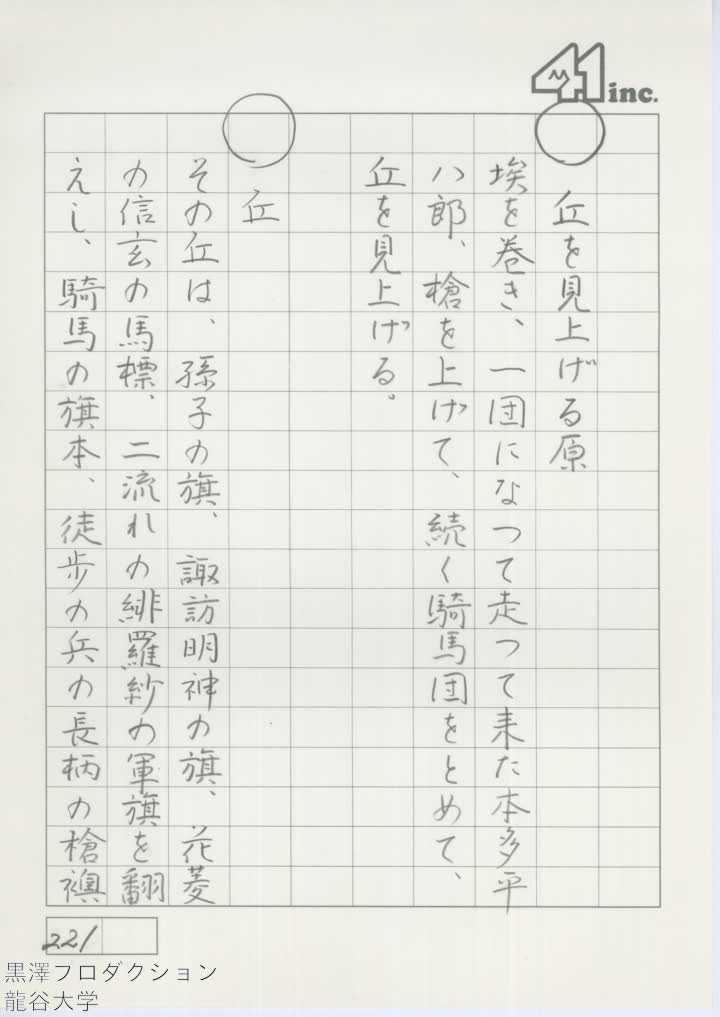 41 inc.
丘を見上げる原
埃を巻き、一団になつて走つて来た本多平
八郎、槍を上げて、続く騎馬団をとめて、
丘を見上げる。
丘
その丘は、孫子の旗、諏訪明神の旗、花菱
の信玄の馬標、二流れの緋羅紗の軍旗を翻
えし、騎馬の旗本、徒歩の兵の長柄の槍襖
221
黒澤プロダクション
龍谷大学